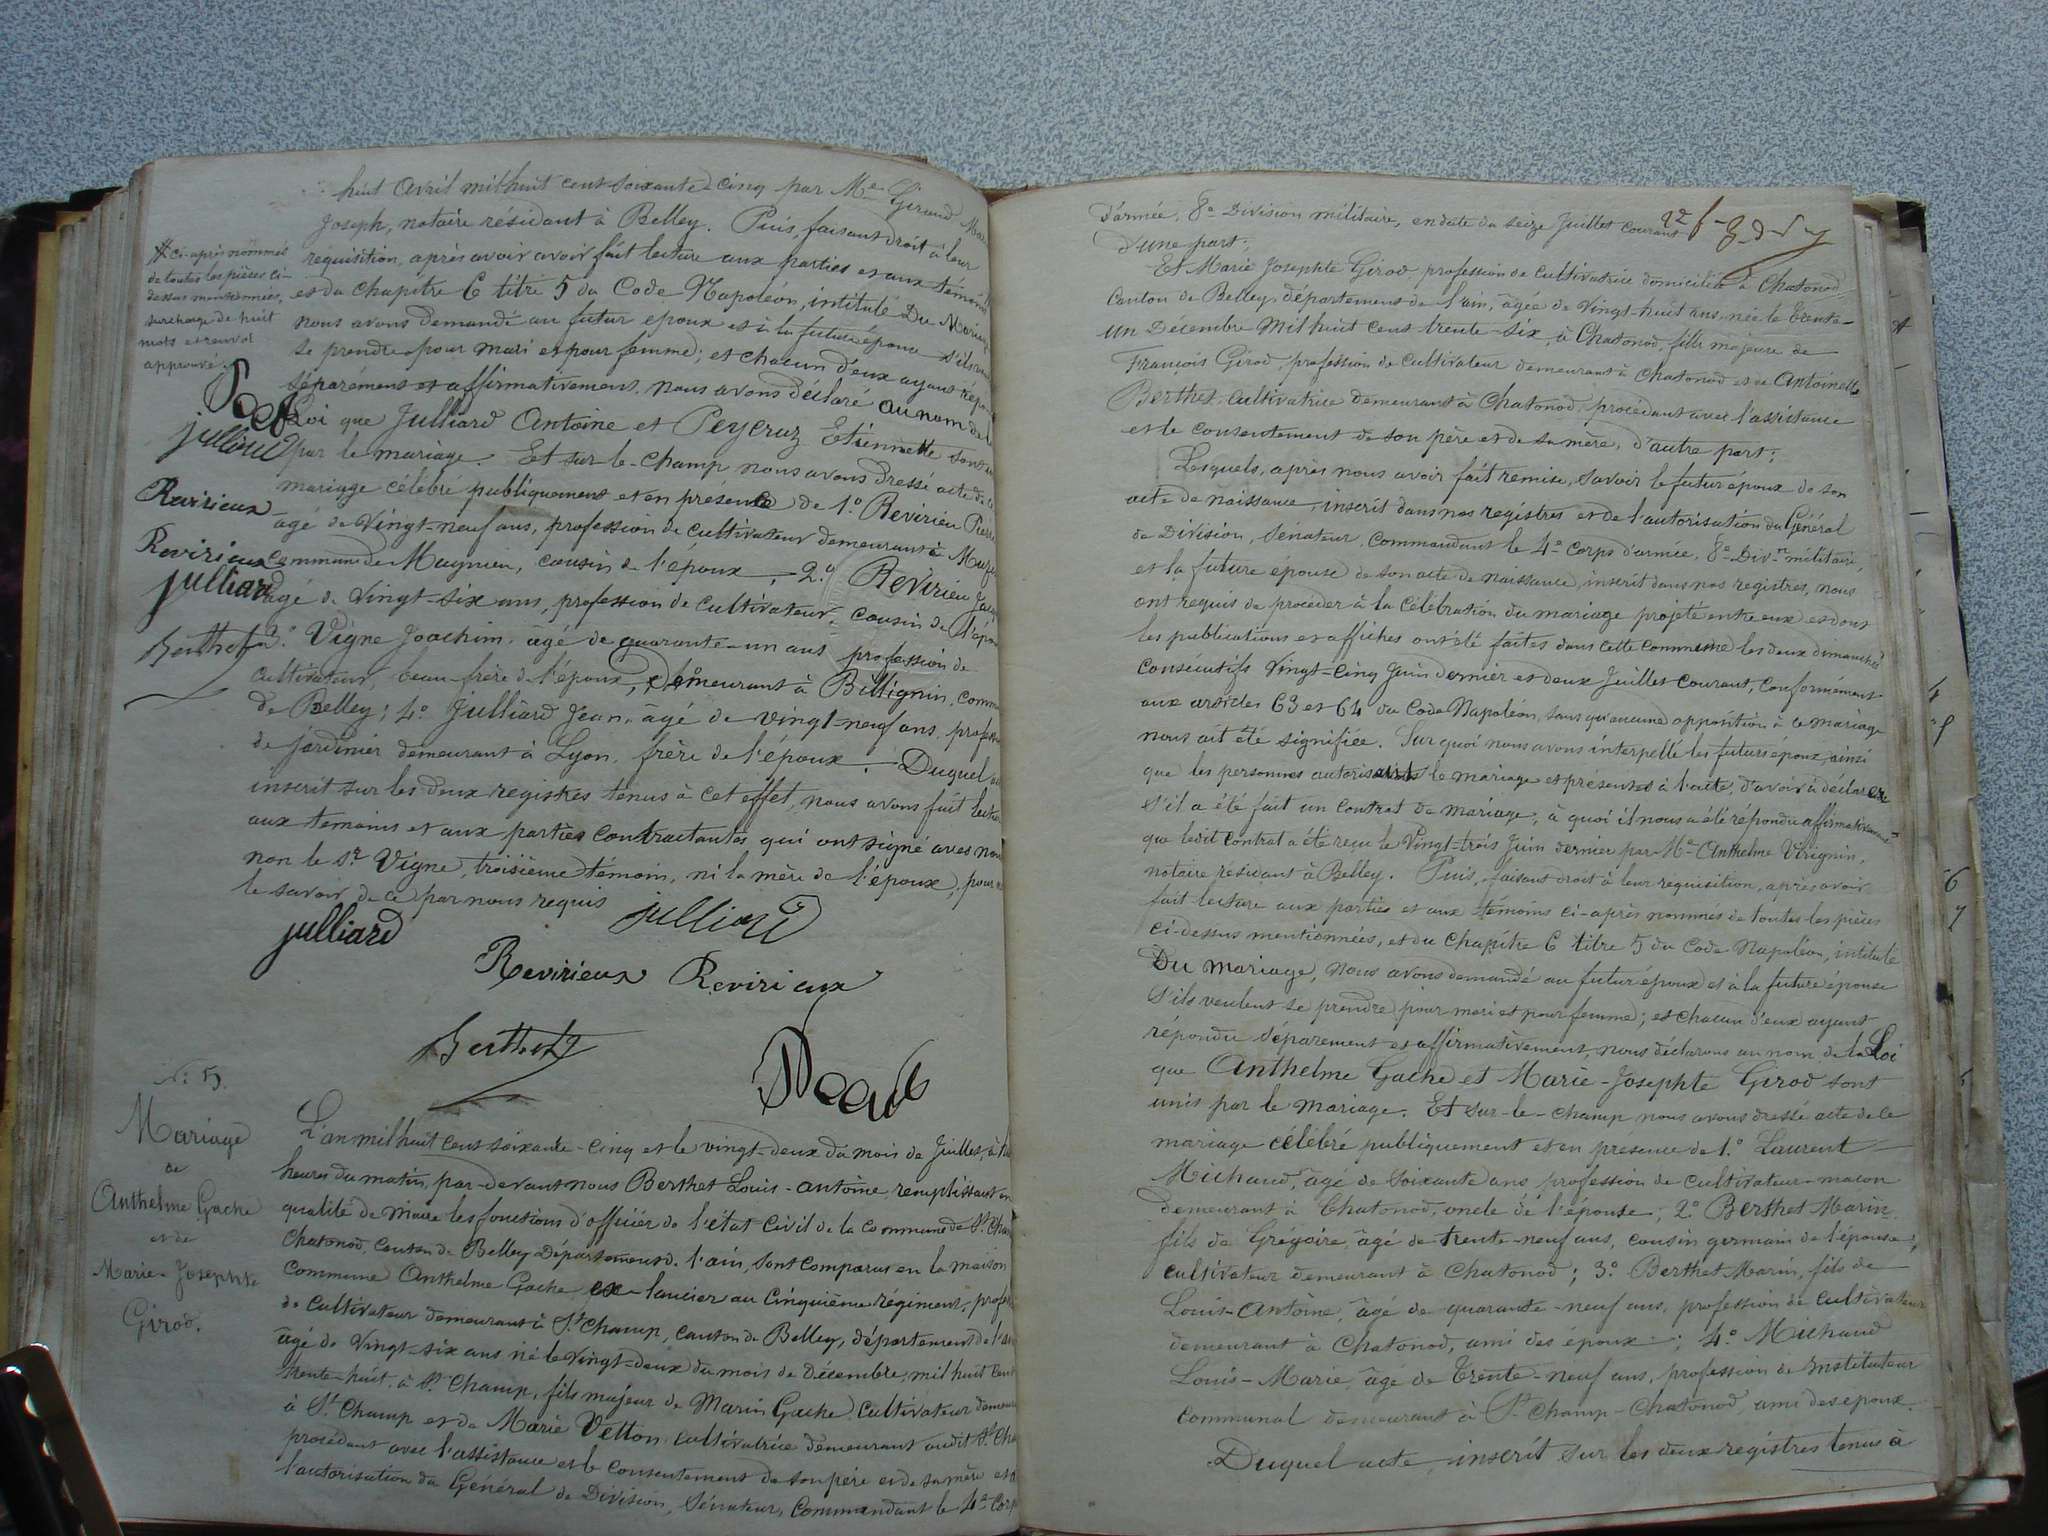 huit avril mil huit cent soixante cinq par Me Giraud
Joseph, notaire résidant à Belley. Puis, faisant droit à leur
réquisition, après avoir avoir fait lecture aux parties et aux témoins
et du chapitre 6 titre 5 du Code Napoléon, intitulé Du Mariage
nous avons demandé au futur époux et à la future épouse s'ils
se prendre pour mari et pour femme; et chacun d'eux ayant
séparément et affirmativement, nous avons déclaré au nom de la
Loi que Julliard Antoine et Peycruz Etiennette sont
par le mariage. Et sur-le-champ nous avons dressé acte de
mariage célébré publiquement et en présence de 1o Revirieu
âgé de vingt-neuf ans, profession de cultivateur demeurant à
commune de Magnieu, cousin de l'époux, 2o Revirieu
âgé de vingt-six ans, profession de cultivateur, cousin de
3o Vigne Joachim, âgé de quarante-un ans profession de
cultivateur, beau-frère de l'époux, demeurant à Billignin,
de Belley; 4o Julliard Jean, âgé de vingt-neuf ans,
de jardinier demeurant à Lyon, frère de l'époux. Duquel
inscrit sur les deux registres tenus à cet effet, nous avons fait
aux témoins et aux parties contractantes qui ont signé avec
non le Sr Vigne, troisième témoin, ni la mère de l'époux, pour
le savoir de ce par nous requis
ci-après nommés
de toutes les pièces ci-
dessus mentionnées,
surcharge de huit
mots et renvoi
approuvé.
julliard
Revirieux
Revirieux
julliard
Berthet
julliard julliard
Revirieux Revirieux
Berthet
No 5.
Mariage
de
Anthelme Gache
et de
Marie-Josephte
Girod.
L'an mil huit cent soixante-cinq et le vingt-deux du mois de Juillet, à
heures du matin, par-devant nous Berthet Louis-Antoine, remplissant en
qualité de Maire les fonctions d'officier de l'état civil de la commune de St
Chatonod, canton de Belley Département de l'ain, sont comparus en la maison
commune Anthelme Gache ex-lancier au Cinquième régiment,
de cultivateur demeurant à St Champ, canton de Belley, département de
âgé de vingt-six ans né le vingt-deux du mois de Décembre, mil huit cent
trente-huit, à St Champ, fils majeur de Marin Gache, cultivateur
à St Champ et de Marie Vetton, cultivatrice demeurant audit St
procédant avec l'assistance et le consentement de son père et de sa mère et
l'autorisation du Général de Division, Sénateur, Commandant le 4e
d'armée, 8e Division militaire, en date du seize Juillet courant
d'une part;
Et Marie Josephte Girod, profession de cultivatrice domiciliée à Chatonod,
Canton de Belley, département de l'ain, âgée de vingt-huit ans, née le trente-
un Décembre Mil huit cent trente-six, à Chatonod, fille majeure de
François Girod, profession de cultivateur demeurant à Chatonod et de Antoinette
Berthet, cultivatrice demeurant à Chatonod, procédant avec l'assistance
et le consentement de son père et de sa mère, d'autre part;
Lesquels, après nous avoir fait remise, savoir le futur époux de son
acte de naissance, inscrit dans nos registres et de l'autorisation du Général
de Division, Sénateur, Commandant le 4e corps d'armée, 8e Divon militaire,
et la future épouse de son acte de naissance, inscrit dans nos registres, nous
ont requis de procéder à la célébration du mariage projeté entre eux et dont
les publications et affiches ont été faites dans cette commune les deux dimanches
consécutifs vingt-cinq Juin dernier et deux Juillet courant, conformément
aux articles 63 et 64 du Code Napoléon, sans qu'aucune opposition à ce mariage
nous ait été signifiée. Sur quoi nous avons interpellé les futurs époux ainsi
que les personnes autorisant le mariage et présentes à l'acte, d'avoir à déclarer
s'il a été fait un contrat de mariage, à quoi il nous a été répondu affirmativement
que ledit contrat a été reçu le vingt-trois Juin dernier par Me Anthelme Virignin,
notaire résidant à Belley. Puis, faisant droit à leur réquisition, après avoir
fait lecture aux parties et aux témoins ci-après nommés de toutes les pièces
ci-dessus mentionnées, et du chapitre 6 titre 5 du Code Napoléon, intitulé
Du mariage, nous avons demandé au futur époux et à la future épouse
s'ils veulent se prendre pour mari et pour femme; et chacun d'eux ayant
répondu séparément et affirmativement, nous déclarons au nom de la Loi
que Anthelme Gache et Marie-Josephte Girod sont
unis par le mariage. Et sur-le-champ nous avons dressé acte de ce
mariage célébré publiquement et en présence de 1o Laurent
Michaud, âgé de soixante ans profession de cultivateur-maçon
demeurant à Chatonod, oncle de l'épouse; 2o Berthet Marin
fils de Grégoire, âgé de trente-neuf ans, cousin germain de l'épouse,
cultivateur demeurant à Chatonod; 3o Berthet Marin, fils de
Louis-Antoine, âgé de quarante-neuf ans, profession de cultivateur
demeurant à Chatonod, ami des époux; 4o Michaud
Louis-Marie, âgé de trente-neuf ans, profession de Instituteur
communal demeurant à St Champ-Chatonod ami des époux.
Duquel acte, inscrit sur les deux registres tenus à